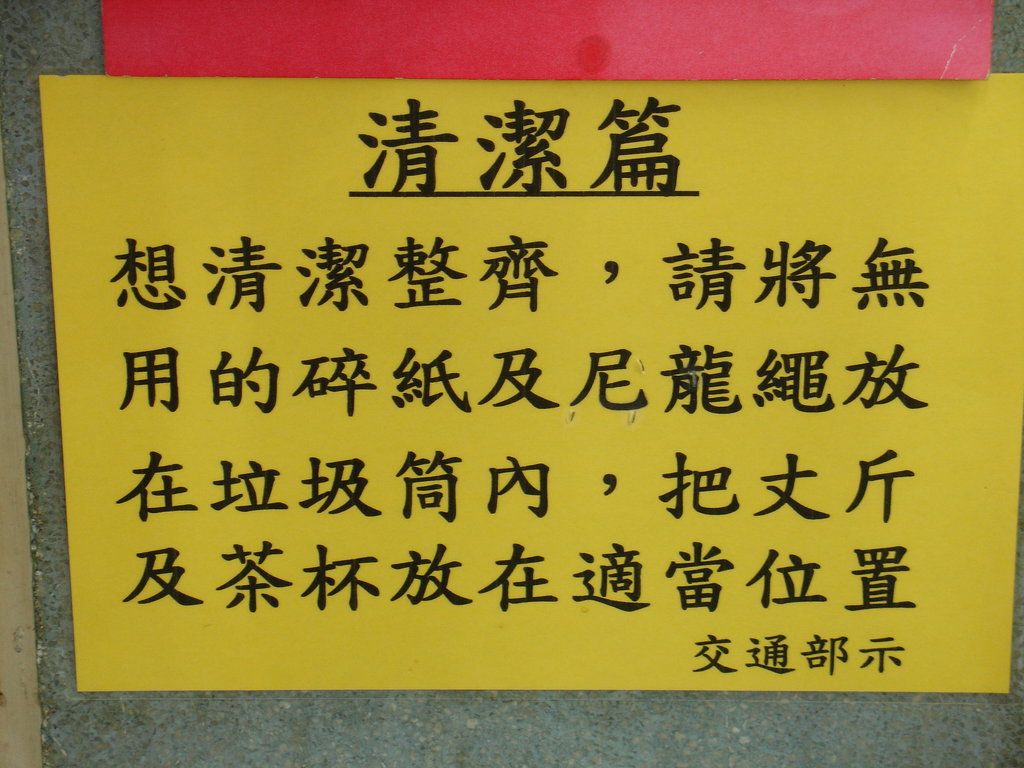 清潔篇
想清潔整齊，請將無
用的碎紙及尼龍繩放
在垃圾筒內，把丈斤
及茶杯放在適當位置
交通部示